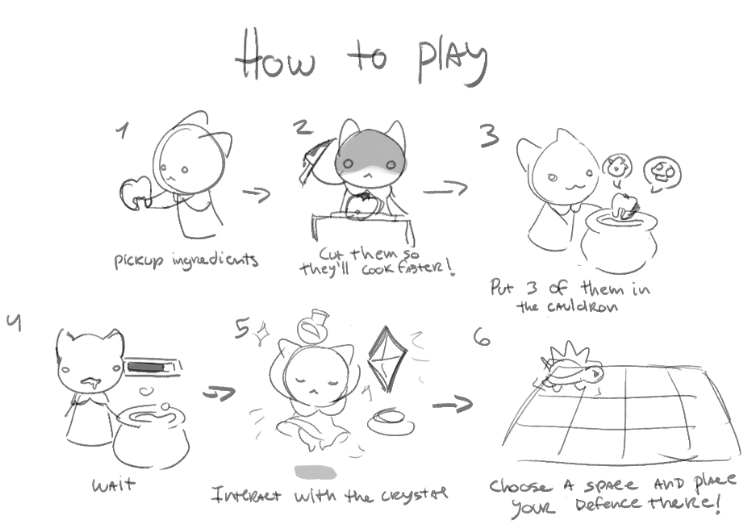 How to play
1
pickup ingredients
2
Cut them so
they'll cook faster!
3
Put 3 of them in
the cauldron
4
wait
5
Interact with the crystal
6
choose a space and place
your defence there!